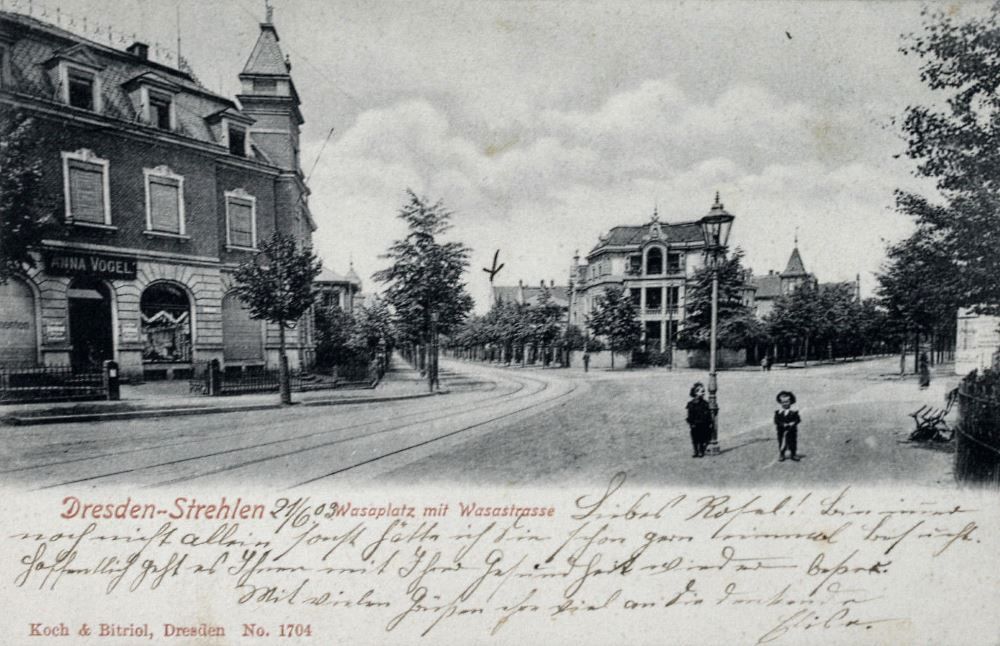 ANNA VOGEL
Dresden-Strehlen 21/6 03 Wasaplatz mit Wasastrasse
Liebes Rosel! Bin immer
noch nicht allein sonst hätte ich Sie schon gern einmal besucht.
Hoffentlich geht es Ihnen mit Ihrer Gesundheit wieder besser.
Mit vielen Grüßen ihre viel an Sie denkende
Koch & Bitriol, Dresden No. 1704